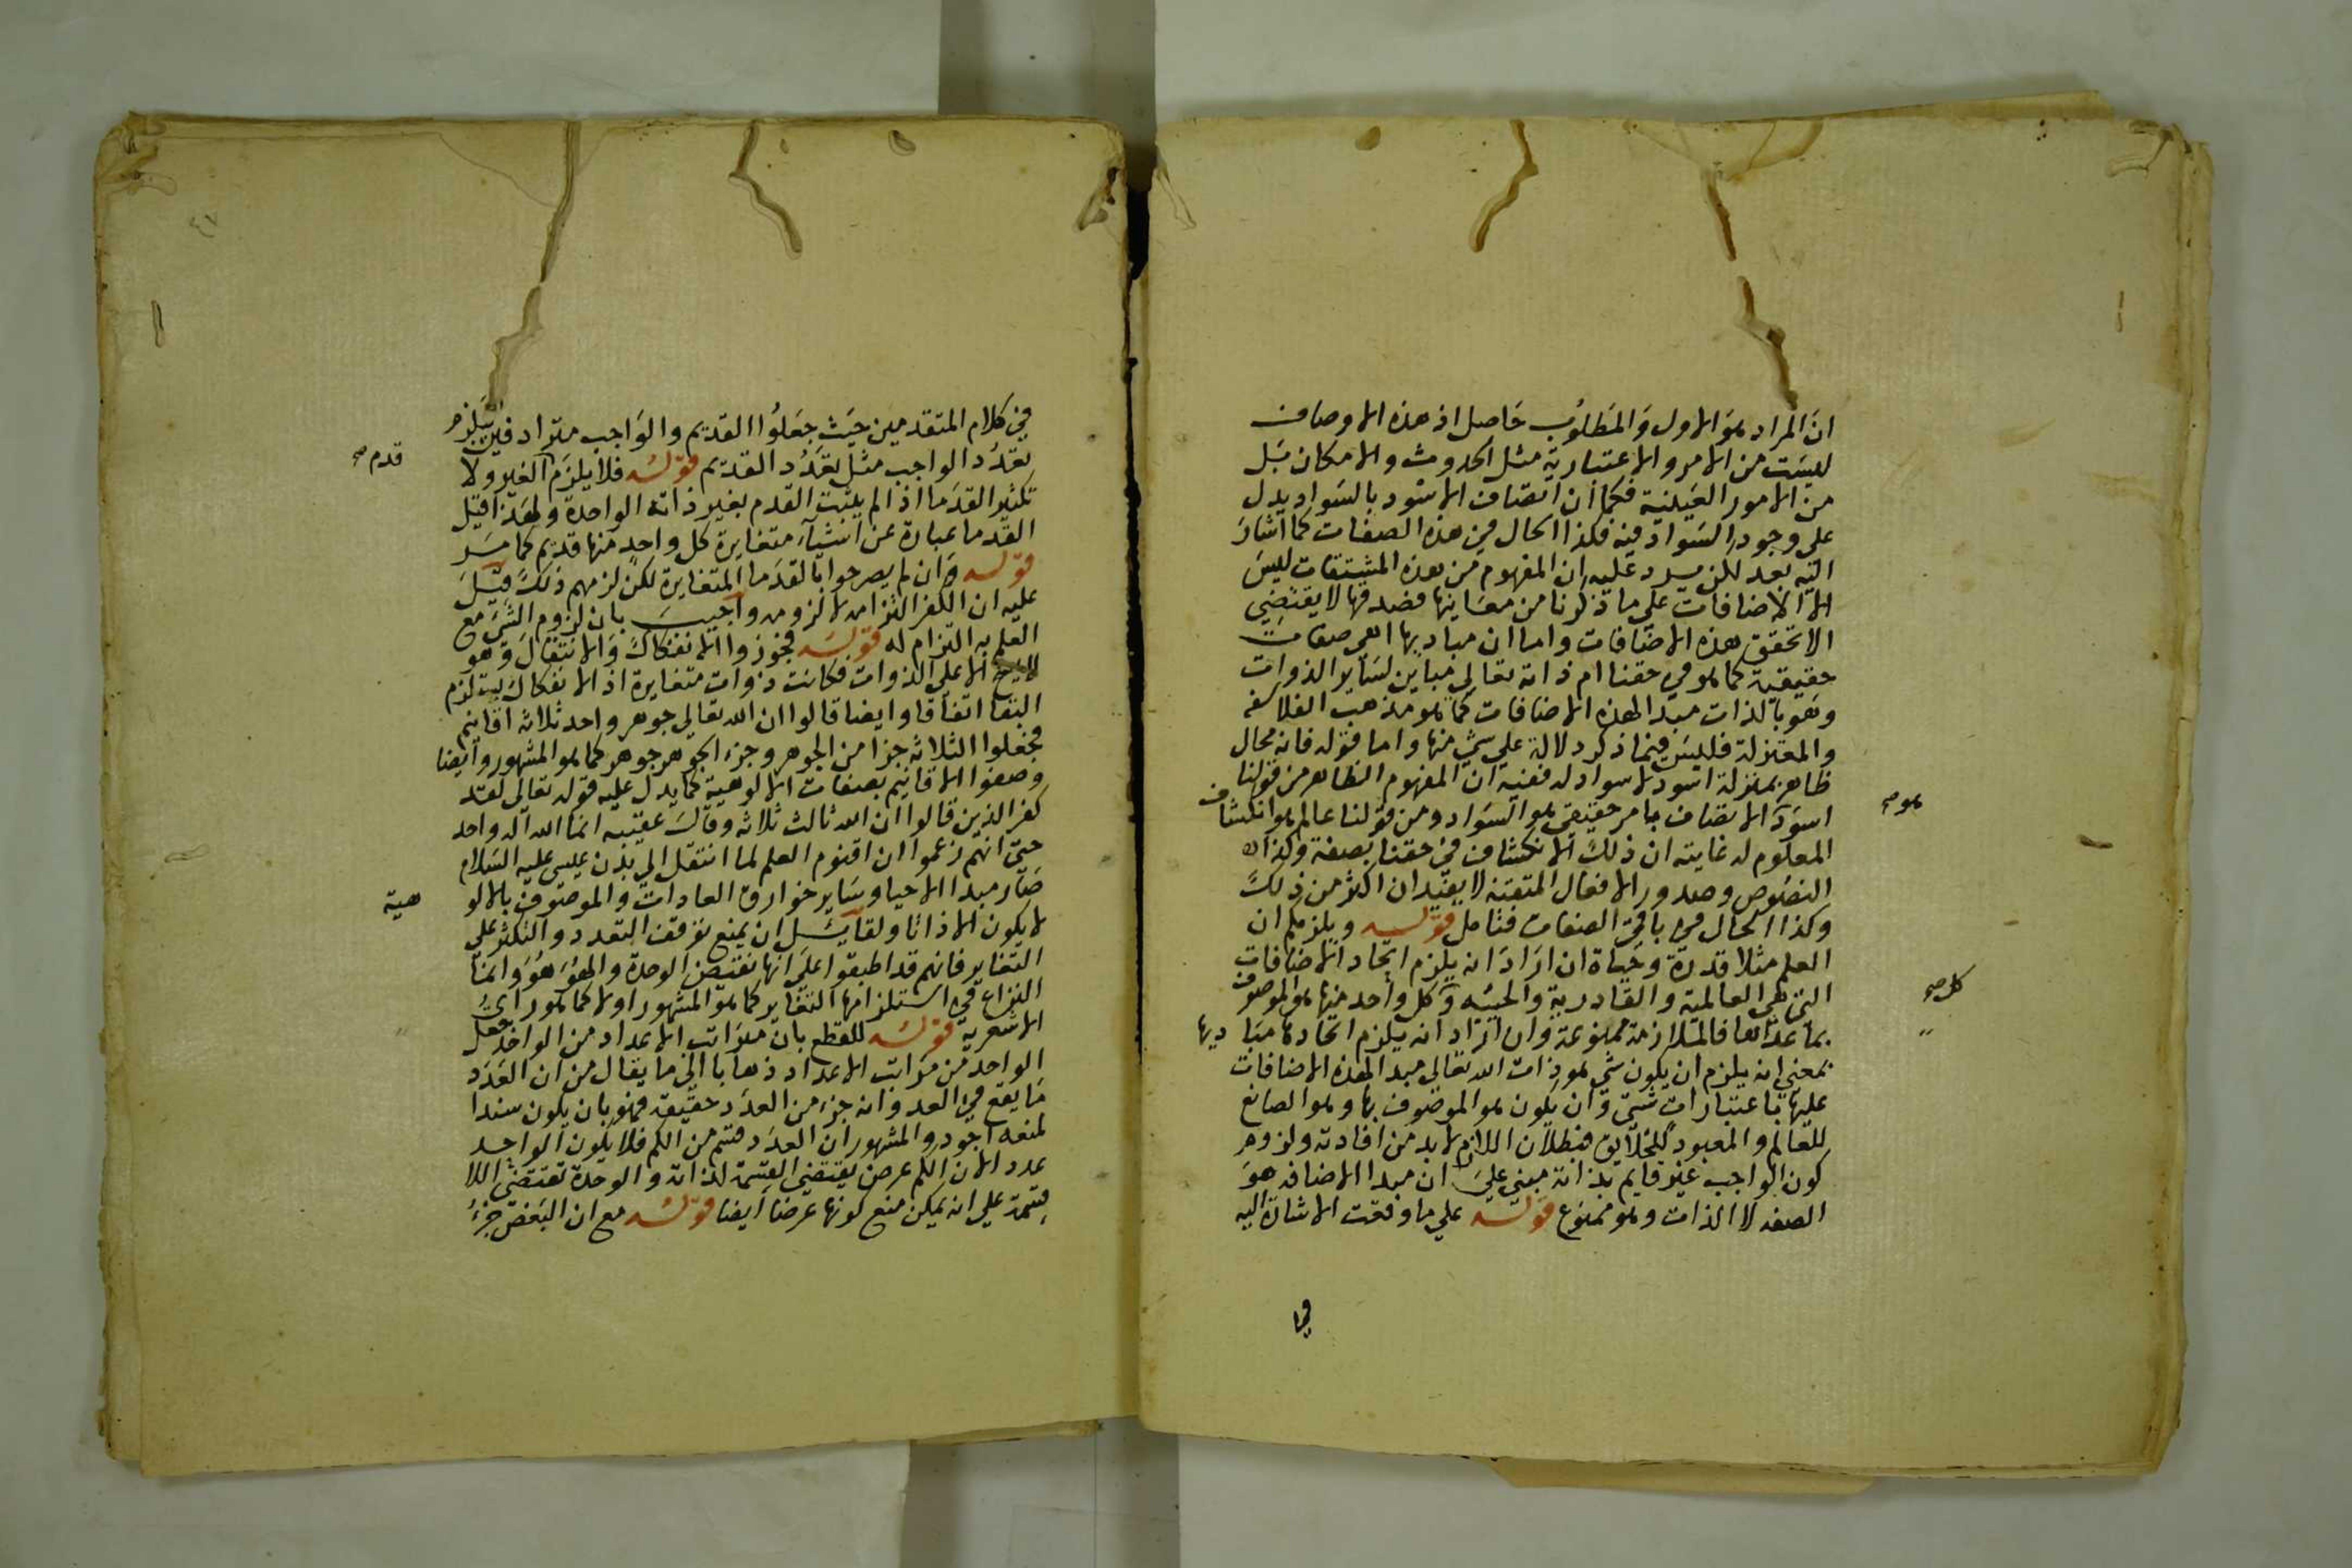 ان المراد هو الاول والمطلوب حاصل اذ هذه الاوصاف
ليست من الامور الاعتبارية مثل الحدوث والامكان بل
من الامور العينية فكما ان اتصاف الاسود بالسواد يدل
على وجود السواد فيه فكذا الحال في هذه الصفات كما اشار
اليه بعد لكن يرد عليه ان المفهوم من هذه المشتقات ليس
الا الاضافات على ما ذكرنا من معانيها فصدقها لا يقتضي
الا تحقق هذه الاضافات واما ان مباديها هي صفات
حقيقية كما هو في حقنا ام ذاته تعالى مباين لساير الذوات
وهو بالذات مبدا لهذه الاضافات كما هو مذهب الفلاسفه
والمعتزلة فليس فيما ذكر دلالة على شي منها واما قوله فانه محال
ظاهر بمنزلة اسود لا سواد له ففيه ان المفهوم الظاهر من قولنا
اسود الاتصاف بامر حقيقي هو السواد ومن قولنا عالم هو انكشاف
هو صح
المعلوم له غايته ان ذلك الانكشاف في حقنا بصفة وكذا
النصوص وصدور الافعال المتقنة لا يفيدان اكثر من ذلك
وكذا الحال في باقي الصفات فتامل قوله ويلزمكم ان
العلم مثلا قدرة وحياة ان اراد انه يلزم اتحاد الاضافات
التي هي العالمية والقادرية والحييه وكل واحد منها هو الموصوف
كل صح
بما عداها فالملازمة ممنوعة وان اراد انه يلزم اتحادها مباديها
بمعنى انه يلزم ان يكون شي هو ذات الله تعالى مبدا لهذه الاضافات
عليها باعتبارات شتى وان يكون هو الموصوف بها وهو الصانع
للعالم والمعبود للخلايق فبطلان اللازم لا بد من افادته ولزوم
كون الواجب غير قايم بذاته مبني على ان مبدا الاضافه هو
الصفه لا الذات وهو ممنوع قوله على ما وقعت الاشارة اليه
في
في كلام المتقدمين حيث جعلوا القديم والواجب مترادفين يلزم
تعدد الواجب مثل تعدد القديم قوله فلا يلزم الغير ولا
قدم صح
تكثير القدما اذ لم يثبت القدم بغير ذاته الواحدة ولهذا قيل
القدما عبارة عن اشياء متغايرة كل واحد منها قديم كما مر
قوله وان لم يصرحوا بالقدما المتغايرة لكن لزمهم ذلك قيل
عليه ان الكفر التزامه لا لزومه واجيب بان لزوم الشي مع
العلم به التزام له قوله فجوزوا الانفكاك والانتقال وهو
الا على الذوات فكانت ذوات متغايرة اذ الانفكاك يستلزم
التغا اتفاقا وايضا قالوا ان الله تعالى جوهر واحد ثلاثه اقانيم
فجعلوا الثلاثه جزا من الجوهر وجزء الجوهر جوهر كما هو المشهور وايضا
وصفوا الاقانيم بصفات الالوهية كما يدل عليه قوله تعالى لقد
كفر الذين قالوا ان الله ثالث ثلاثه وقال عقيبه انما الله اله واحد
حتى انهم زعموا ان اقنوم العلم لما انتقل الى بدن عيسى عليه السلام
صار مبدا الاحيا وساير خوارق العادات والموصوف بالالو
هية
لا يكون الا ذاتا ولقايل ان يمنع توقف التعدد والتكثر على
التغاير فانهم قد اطبقوا على انها نقيض الوحدة والهو هو وانما
النزاع في استلزامها التغاير كما هو المشهور او لا كما هو راي
الاشعرية قوله للقطع بان مراتب الاعداد من الواحد جعل
الواحد من مراتب الاعداد ذهابا الى ما يقال من ان العدد
ما يقع في العد وانه جزء من العدد حقيقه فهو بان يكون سندا
لمنعه اجود والمشهور ان العدد قسم من الكم فلا يكون الواحد
عددا لان الكم عرض يقتضي القسمة لذاته والوحدة تقتضي اللا
قسمة على انه يمكن منع كونها عرضا ايضا قوله مع ان البعض جزء